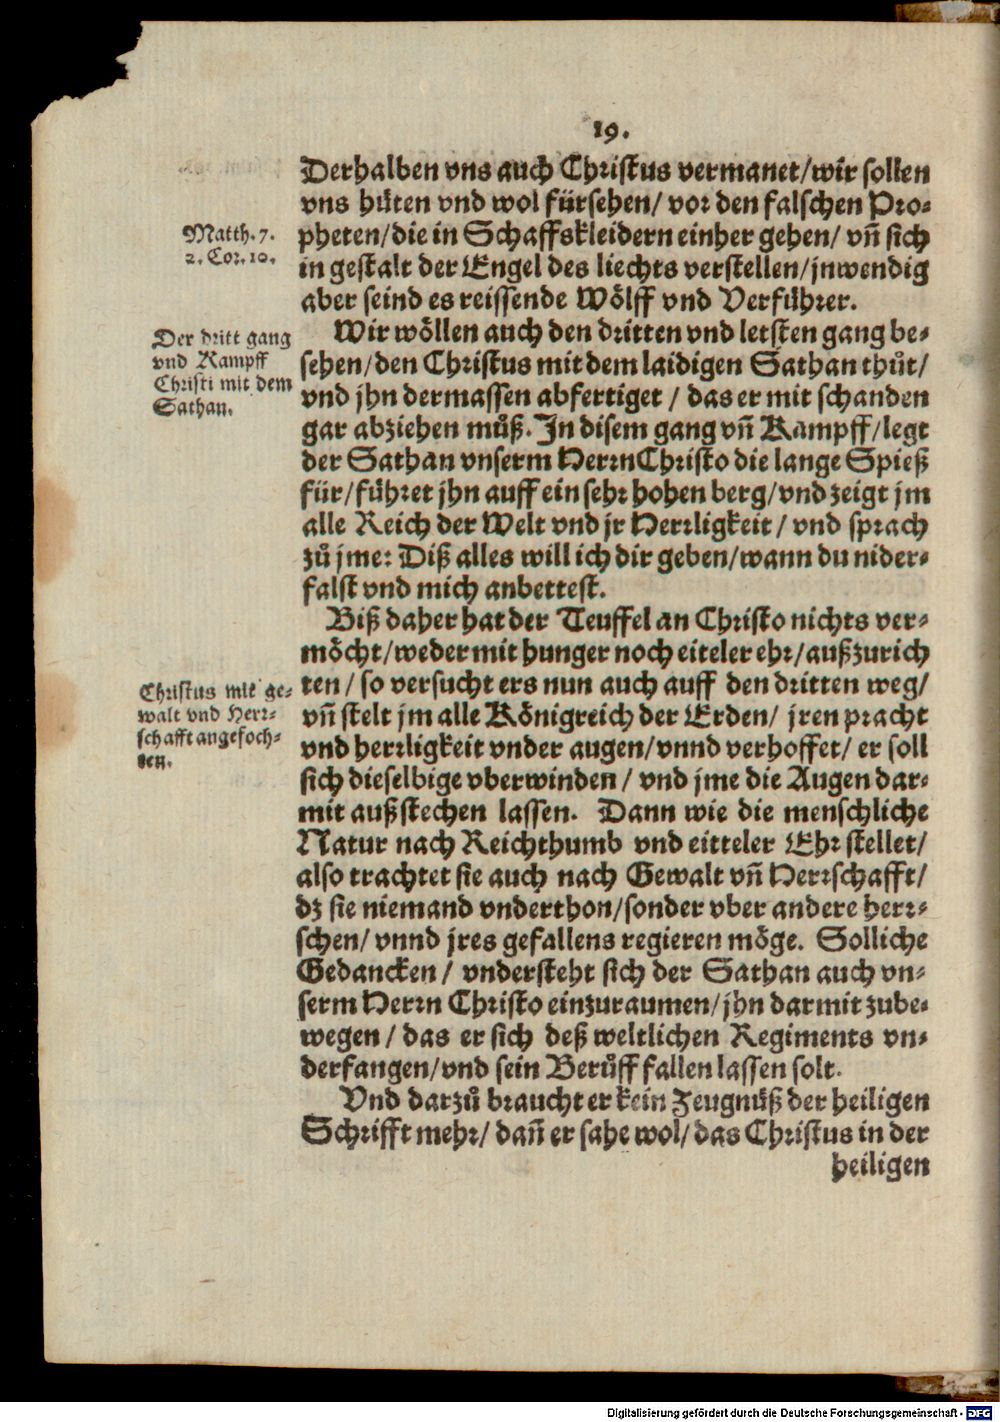 19.
Derhalben vns auch Christus vermanet/wir sollen
vns hüten vnd wol fürsehen/ vor den falschen Pro-
Matth. 7.
2. Cor. 10.
pheten/die in Schaffskleidern einher gehen/ vñ sich
in gestalt der Engel des liechts verstellen/jnwendig
aber seind es reissende Wölff vnd Verführer.
Der dritt gang
vnd Kampff
Christi mit dem
Sathan.
Wir wöllen auch den dritten vnd letsten gang be-
sehen/den Christus mit dem laidigen Sathan thůt/
vnd jhn dermassen abfertiget / das er mit schanden
gar abziehen můß. In disem gang vñ Kampff/legt
der Sathan vnserm HerrnChristo die lange Spieß
für/führet jhn auff ein sehr hohen berg/vnd zeigt jm
alle Reich der Welt vnd jr Herrligkeit / vnd sprach
zů jme: Diß alles will ich dir geben/wann du nider-
falst vnd mich anbettest.
Biß daher hat der Teuffel an Christo nichts ver-
möcht/weder mit hunger noch eiteler ehr/außzurich
Christus mit ge-
walt vnd Herr-
schafft angefoch-
ten.
ten / so versucht ers nun auch auff den dritten weg/
vñ stelt jm alle Königreich der Erden/ jren pracht
vnd herrligkeit vnder augen/vnnd verhoffet/ er soll
sich dieselbige vberwinden / vnd jme die Augen dar-
mit außstechen lassen. Dann wie die menschliche
Natur nach Reichthumb vnd eitteler Ehr stellet/
also trachtet sie auch nach Gewalt vñ Herrschafft/
dz sie niemand vnderthon/sonder vber andere herr-
schen/ vnnd jres gefallens regieren möge. Solliche
Gedancken / vndersteht sich der Sathan auch vn-
serm Herrn Christo einzuraumen/jhn darmit zube-
wegen / das er sich deß weltlichen Regiments vn-
derfangen/vnd sein Berůff fallen lassen solt.
Vnd darzů braucht er kein Zeugnüß der heiligen
Schrifft mehr/ dañ er sahe wol/das Christus in der
heiligen
Digitalisierung gefördert durch die Deutsche Forschungsgemeinschaft - DFG